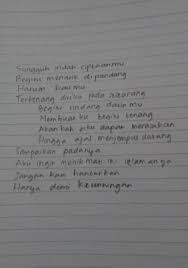 Sungguh indah ciptaanmu
Begitu menarik dipandang
Harum baumu
Terkenang diriku pada seseorang
Begitu rindang daunmu
Membuatku begitu tenang
Akankah aku dapat merasakan
Hingga ajal menjemput datang
Sampaikan padanya
Aku ingin menikmati
Jangan kau hancurkan
Hanya demi keuntungan